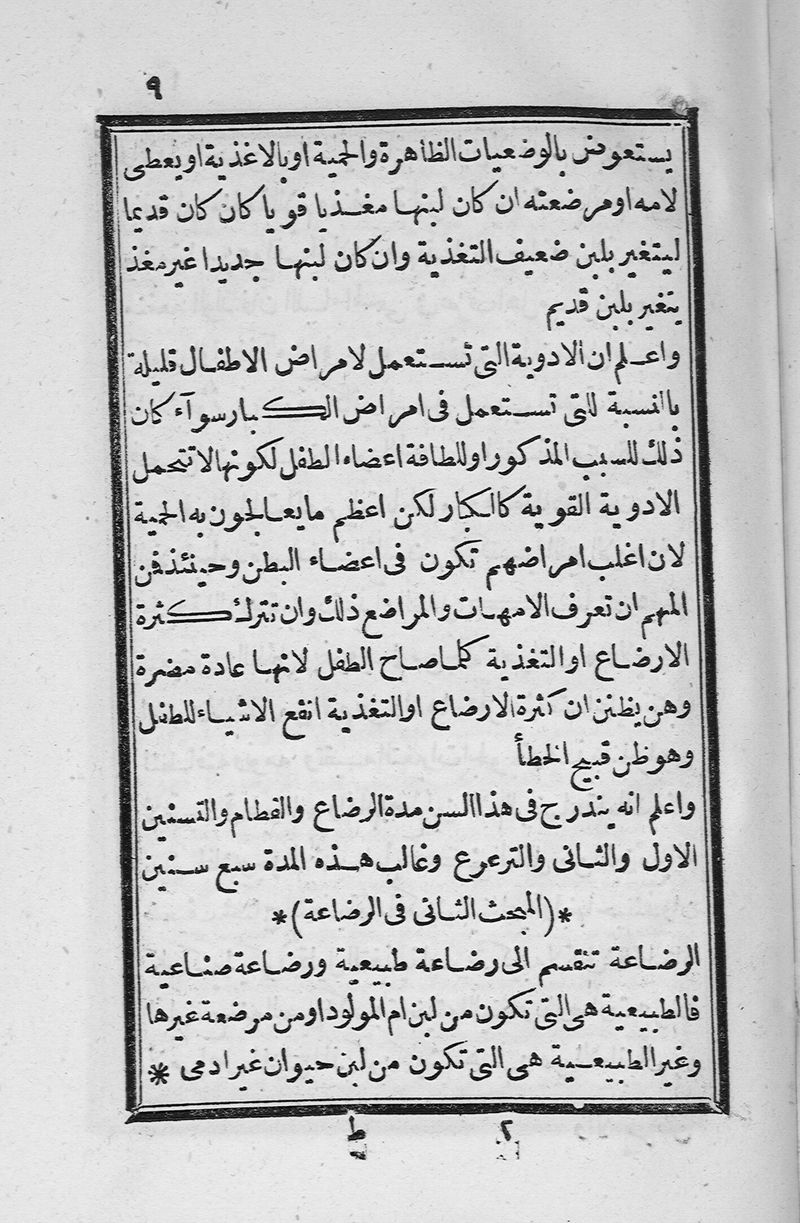 ٩
يستعوض بالوضعيات الظاهرة والحمية او بالاغذية او يعطى
لامه او مرضعته ان كان لبنها مغذيا قويا كان كان قديما
ليتغير بلبن ضعيف التغذية وان كان لبنها جديدا غير مغذ
يتغير بلبن قديم
واعلم ان الادوية التى تستعمل لامراض الاطفال قليلة
بالنسبة للتى تستعمل فى امراض الكبار سوآء كان
ذلك للسبب المذكور او للطافة اعضاء الطفل لكونها لا تتحمل
الادوية القوية كالكبار لكن اعظم ما يعالجون به الحمية
لان اغلب امراضهم تكون فى اعضاء البطن وحينئذ فن
المهم ان تعرف الامهات والمراضع ذلك وان تترك كثرة
الارضاع او التغذية كلما صاح الطفل لانها عادة مضرة
وهن يظنن ان كثرة الارضاع او التغذية انفع الاشياء للطفل
وهو ظن قبيح الخطأ
واعلم انه يندرج فى هذا السن مدة الرضاع والفطام والتسنين
الاول والثانى والترعرع وغالب هذه المدة سبع سنين
*(المبحث الثانى فى الرضاعة)*
الرضاعة تنقسم الى رضاعة طبيعية ورضاعة صناعية
فالطبيعية هى التى تكون من لبن ام المولود او من مرضعة غيرها
وغير الطبيعية هى التى تكون من لبن حيوان غير ادمى *
٢ ط